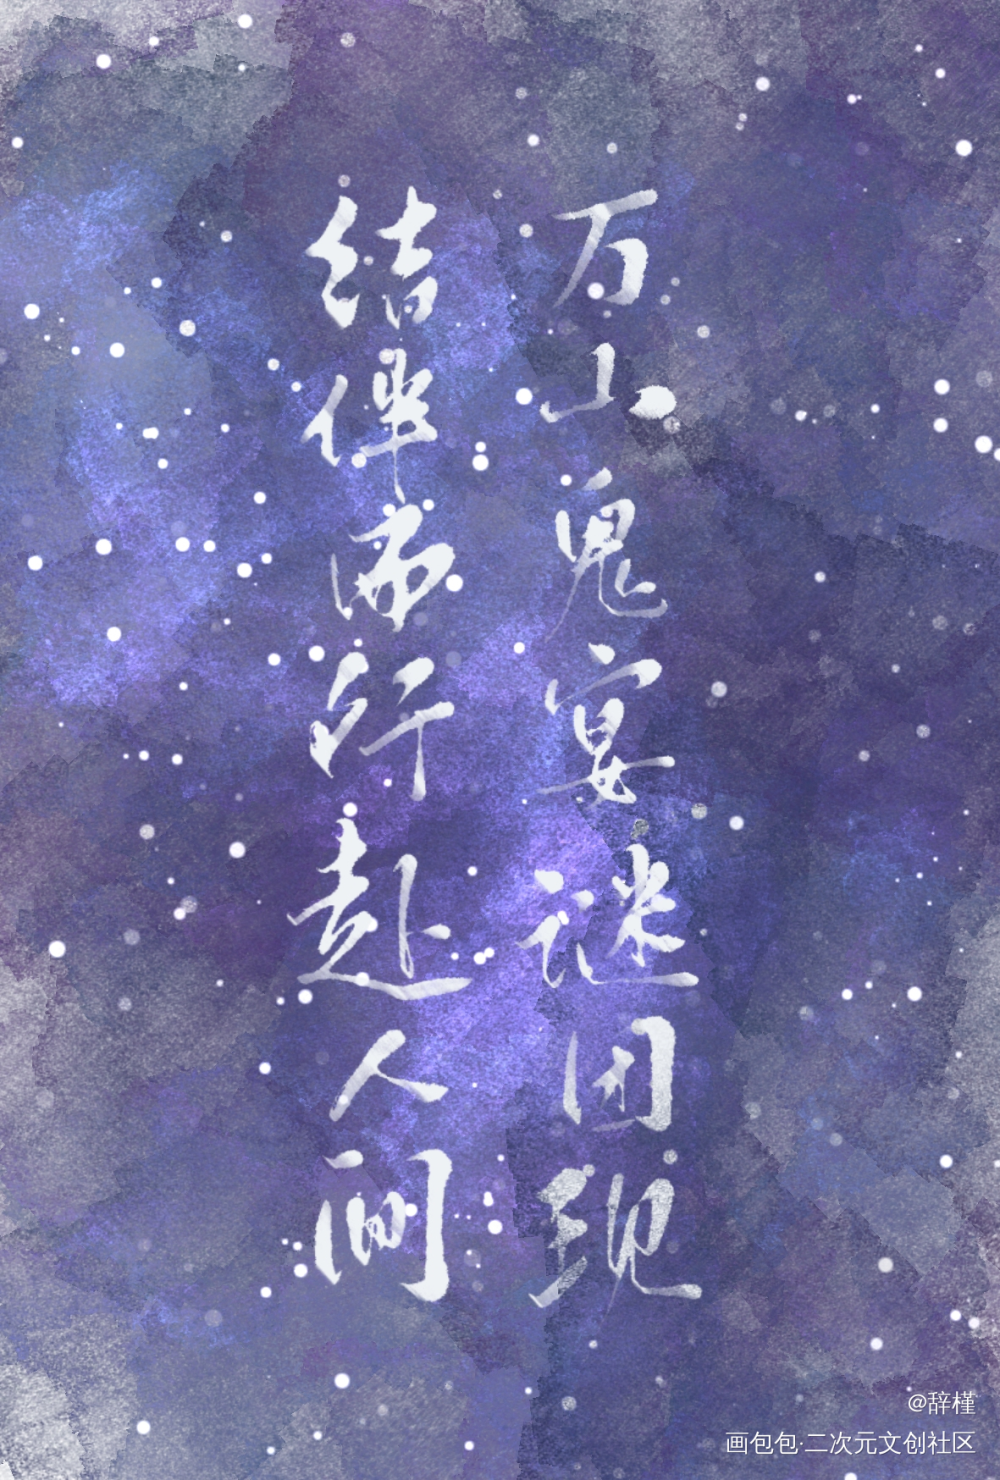 万山鬼宴谜团现
结伴而行赴人间
@辞槿
画包包·二次元文创社区